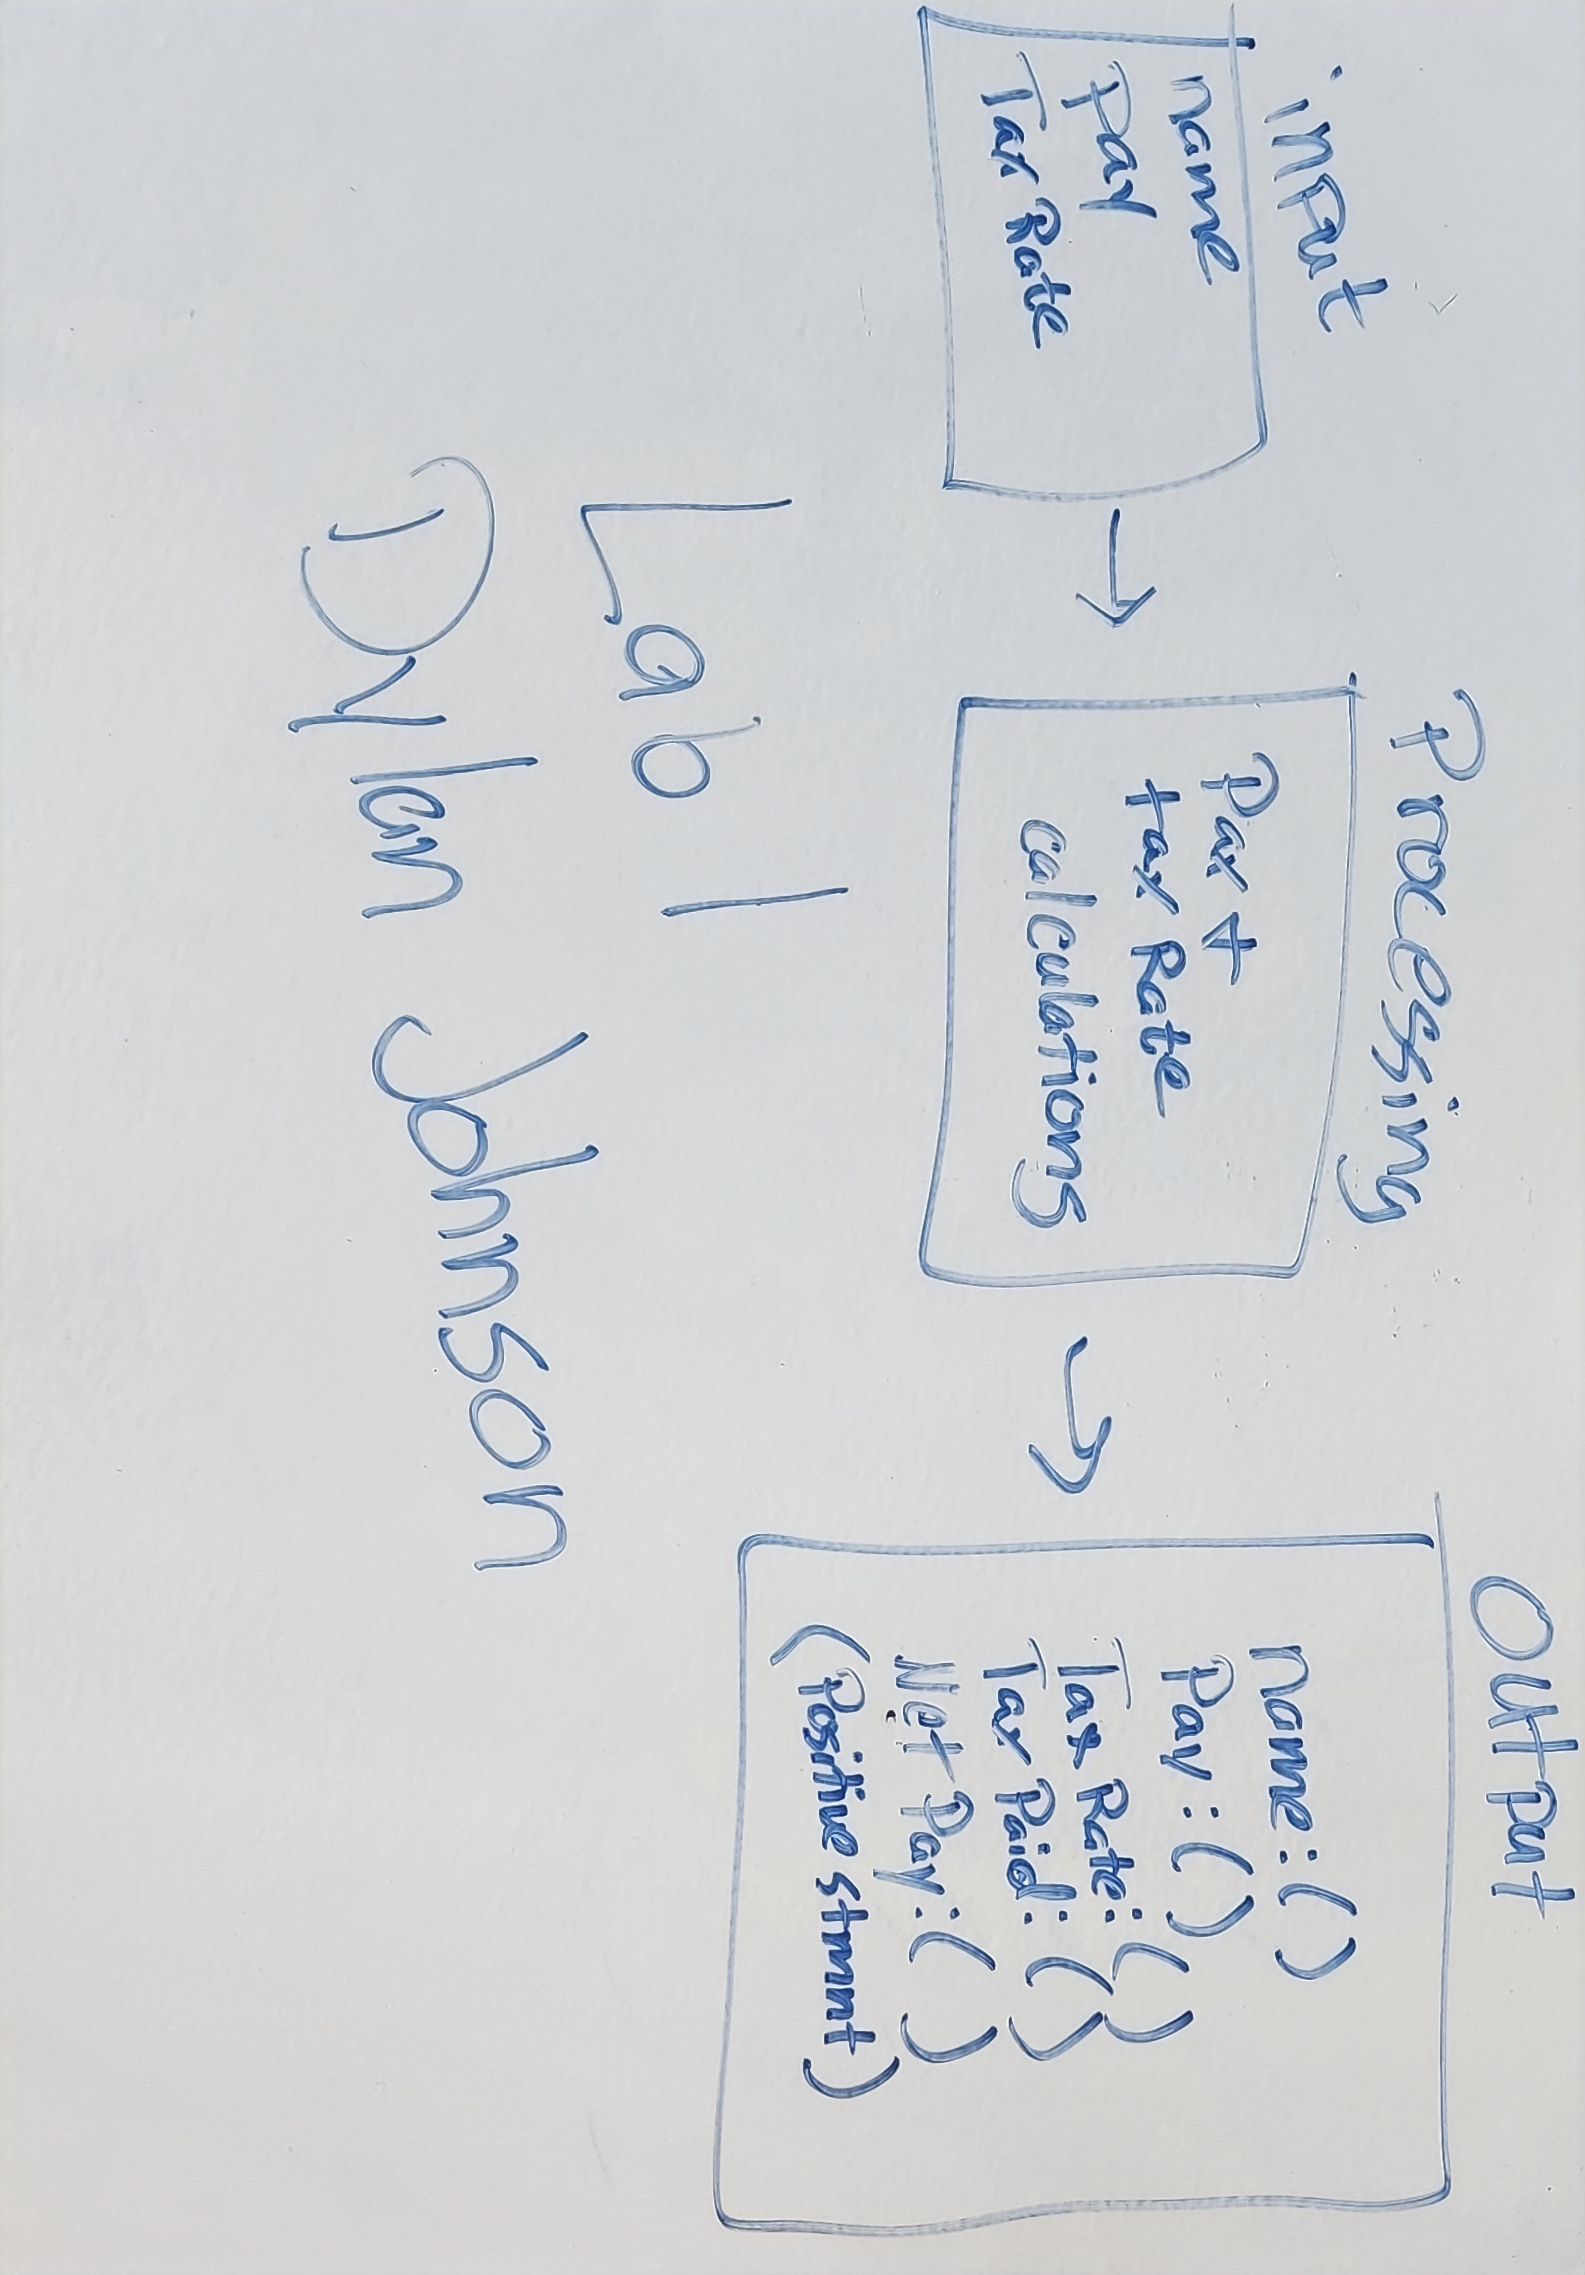 input
name
pay
Tax Rate
Processing
Pay +
tax Rate
calculations
Output
name: ( )
Pay: ( )
Tax Rate: ( )
Tax Paid: ( )
Net Pay: ( )
(Positive stmnt)
Lab 1
Dylan Johnson